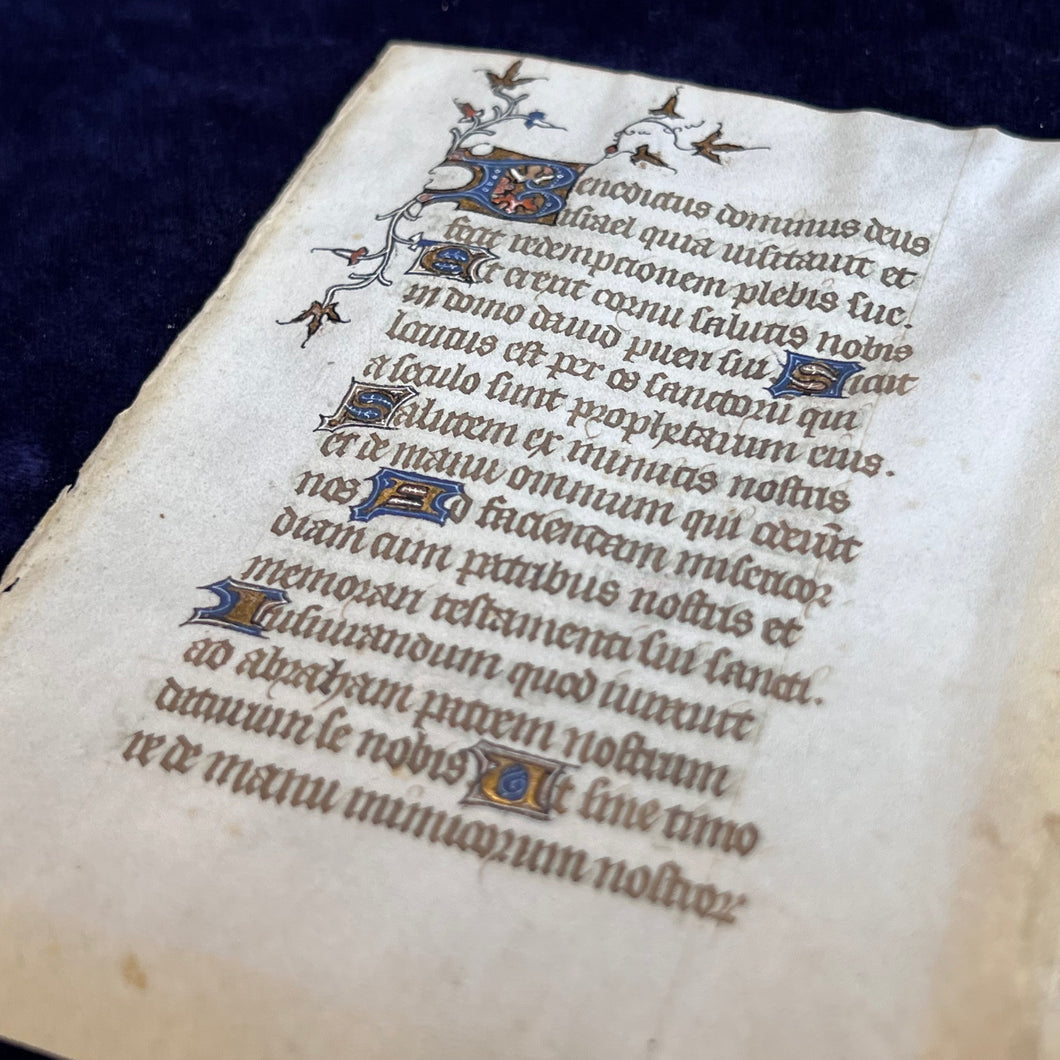 Benedictus dominus deus
israel quia uisitauit et
fecit redempcionem plebis sue.
Et erexit cornu salutis nobis
in domo dauid pueri sui Sicut
locutus est per os sanctoru qui
a seculo sunt prophetarum eius.
Salutem ex inimicis nostris
et de manu omnium qui oderūt
nos Ad faciendam misericor
diam cum patribus nostris et
memorari testamenti sui sancti.
Iusiurandum quod iurauit
ad abraham patrem nostrum
daturum se nobis Ut sine timo
re de manu inimicorum nostror